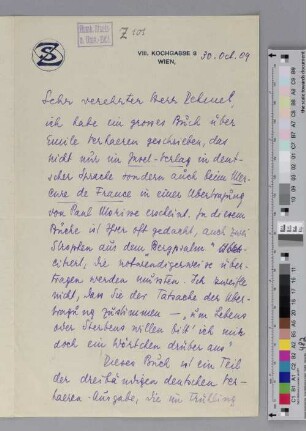 SZ
Z 101
VIII. KOCHGASSE 8
WIEN,
30. Oct. 09
Sehr verehrter Herr Dehmel,
ich habe ein grosses Buch über
Emile Verhaeren geschrieben, das
nicht nur im Insel-Verlag in deut-
scher Sprache sondern auch beim Mer-
cure de France in einer Übertragung
von Paul Morisse erscheint. In diesem
Buche ist Ihrer oft gedacht, auch zwei
Strophen aus dem „Bergpsalm"
citiert, die notwendigerweise über-
tragen werden mussten. Ich zweifle
nicht, dass Sie der Tatsache der Über-
tragung zustimmen –, um Lebens
oder Sterbens willen bitt' ich um
doch ein Wörtchen drüber aus"
Dieses Buch ist ein Teil
der dreibändigen deutschen Ver-
haeren-Ausgabe, die im Frühling